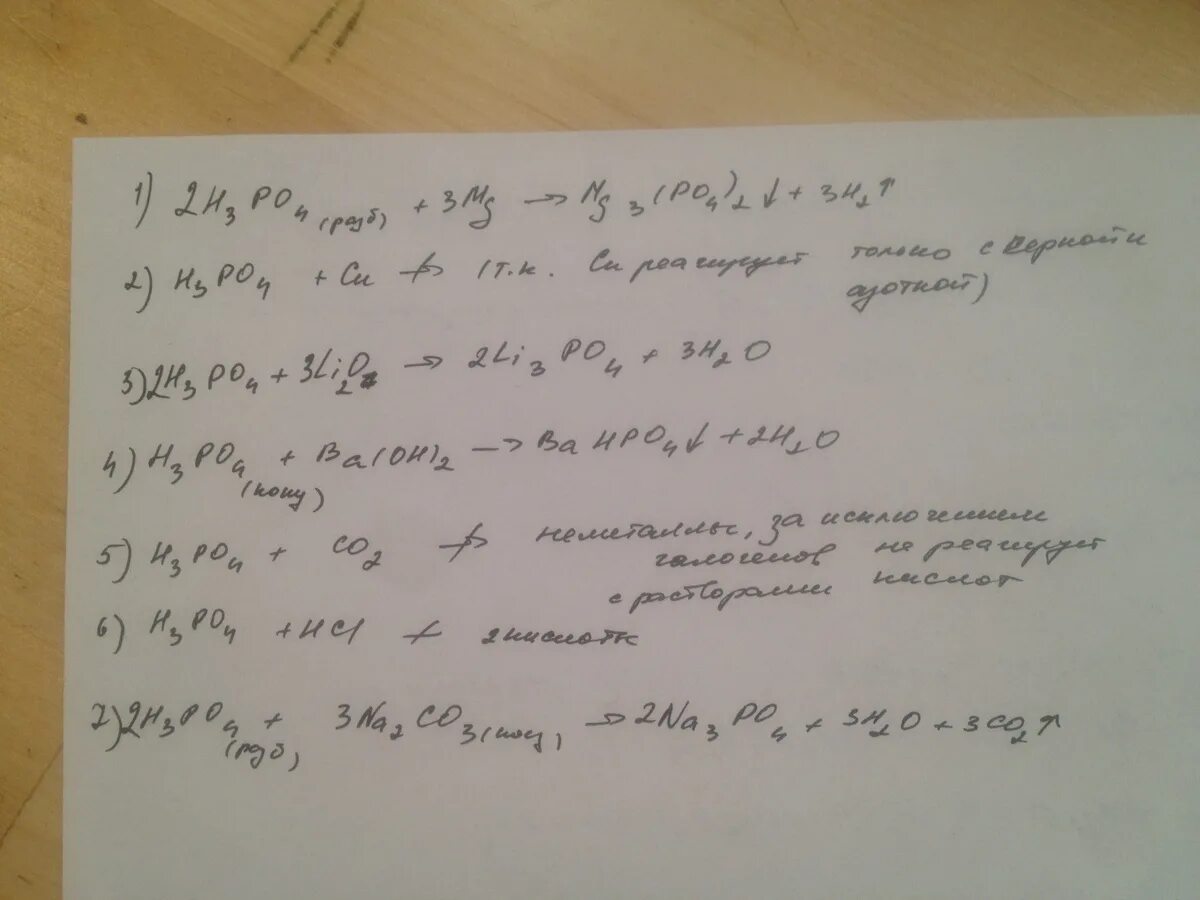 1) 2H₃PO₄ (разб) + 3Mg → Mg₃(PO₄)₂↓ + 3H₂↑
2) H₃PO₄ + Cu ↛ (т.к. Cu реагирует только с серной и
азотной)
3) 2H₃PO₄ + 3Li₂O → 2Li₃PO₄ + 3H₂O
4) H₃PO₄ (конц) + Ba(OH)₂ → BaHPO₄↓ + 2H₂O
5) H₃PO₄ + CO₂ ↛ неметаллы, за исключением
галогенов не реагирует
с растворами кислот
6) H₃PO₄ + HCl ↛ 2 кислоты
7) 2H₃PO₄ (разб) + 3Na₂CO₃ (конц) → 2Na₃PO₄ + 3H₂O + 3CO₂↑